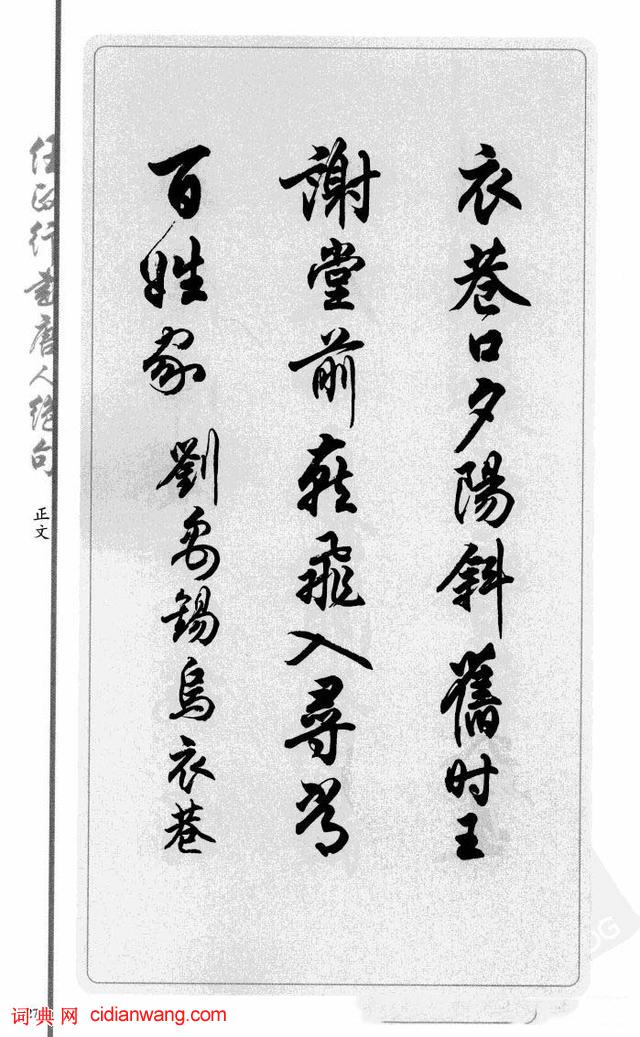 衣巷口夕陽斜舊时王
謝堂前燕飛入尋常
百姓家 劉禹錫烏衣巷
任政行書唐人绝句
正文
27
词典网 cidianwang.com